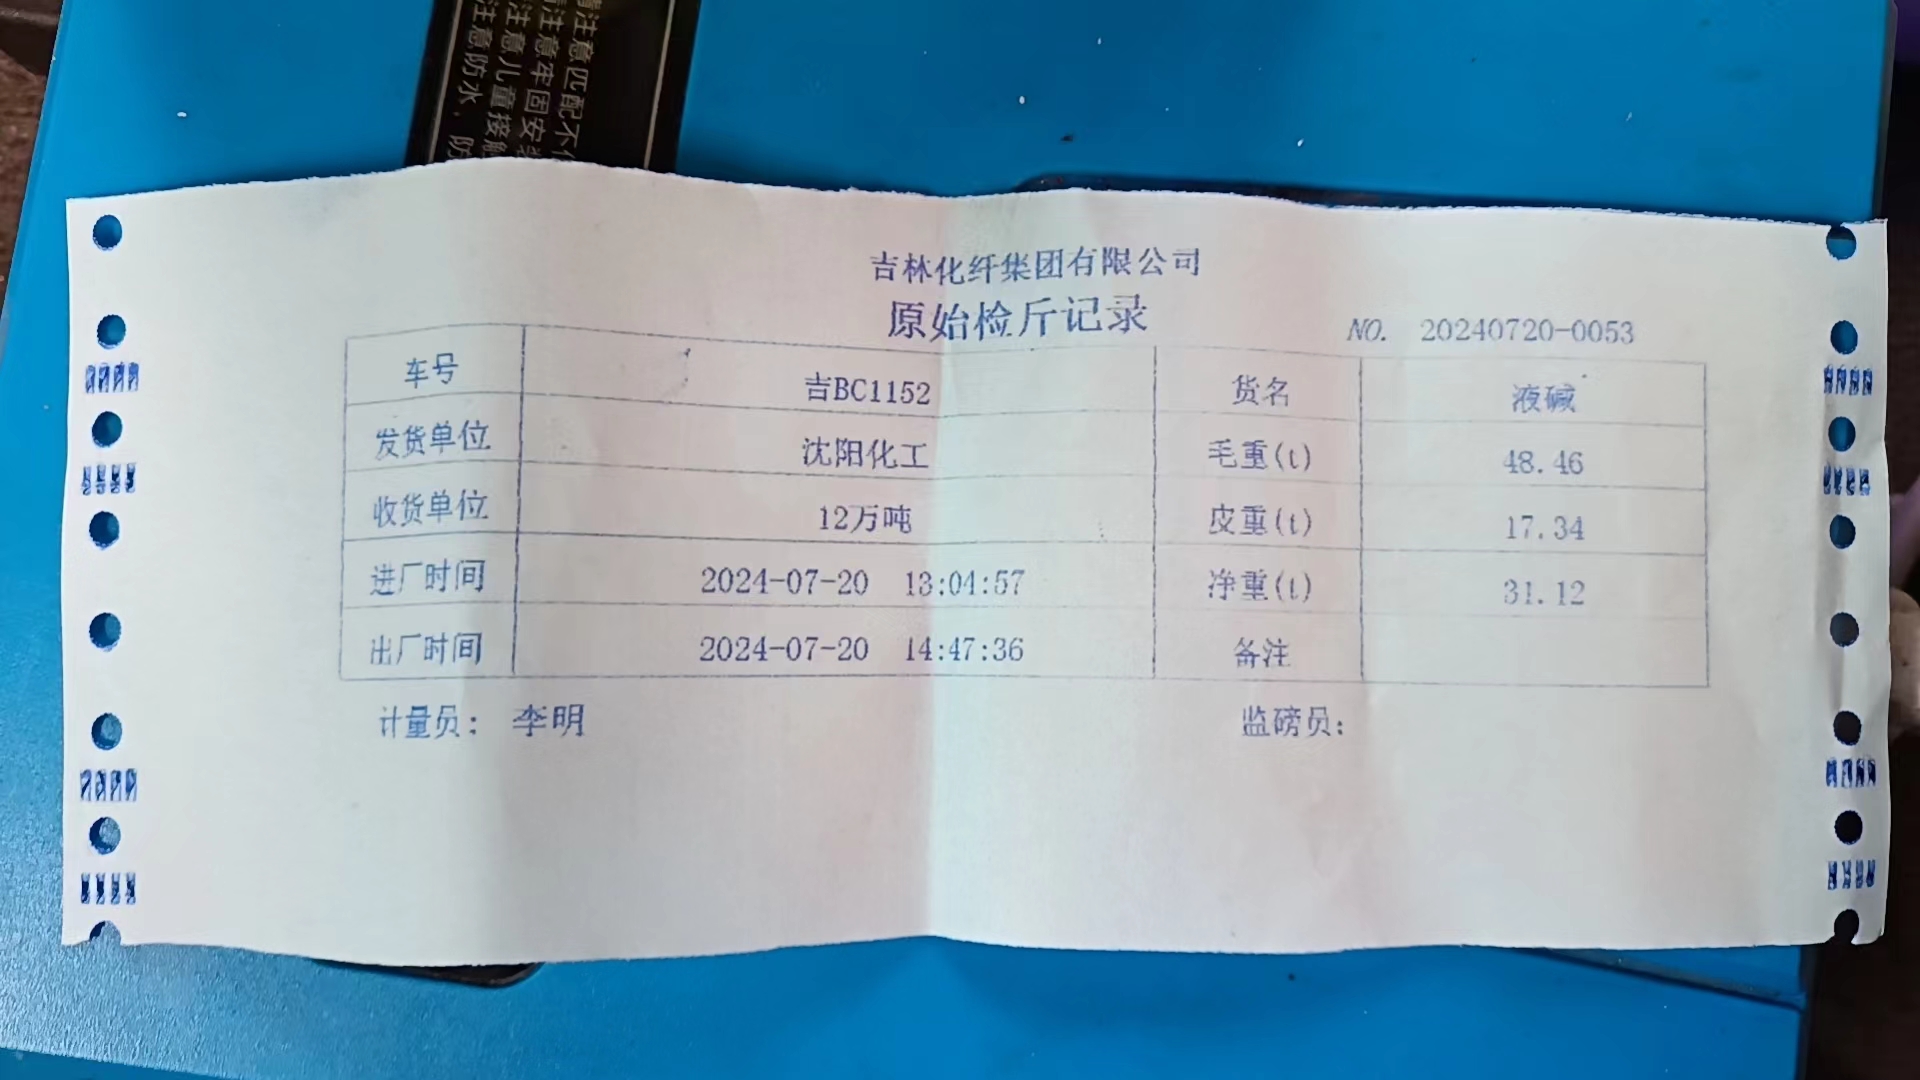 请注意匹配不
请注意牢固安
注意儿童接触
注意防水、防
吉林化纤集团有限公司
原始检斤记录
NO. 20240720-0053
车号 吉BC1152 货名 液碱
发货单位 沈阳化工 毛重(t) 48.46
收货单位 12万吨 皮重(t) 17.34
进厂时间 2024-07-20 13:04:57 净重(t) 31.12
出厂时间 2024-07-20 14:47:36 备注
计量员： 李明 监磅员：